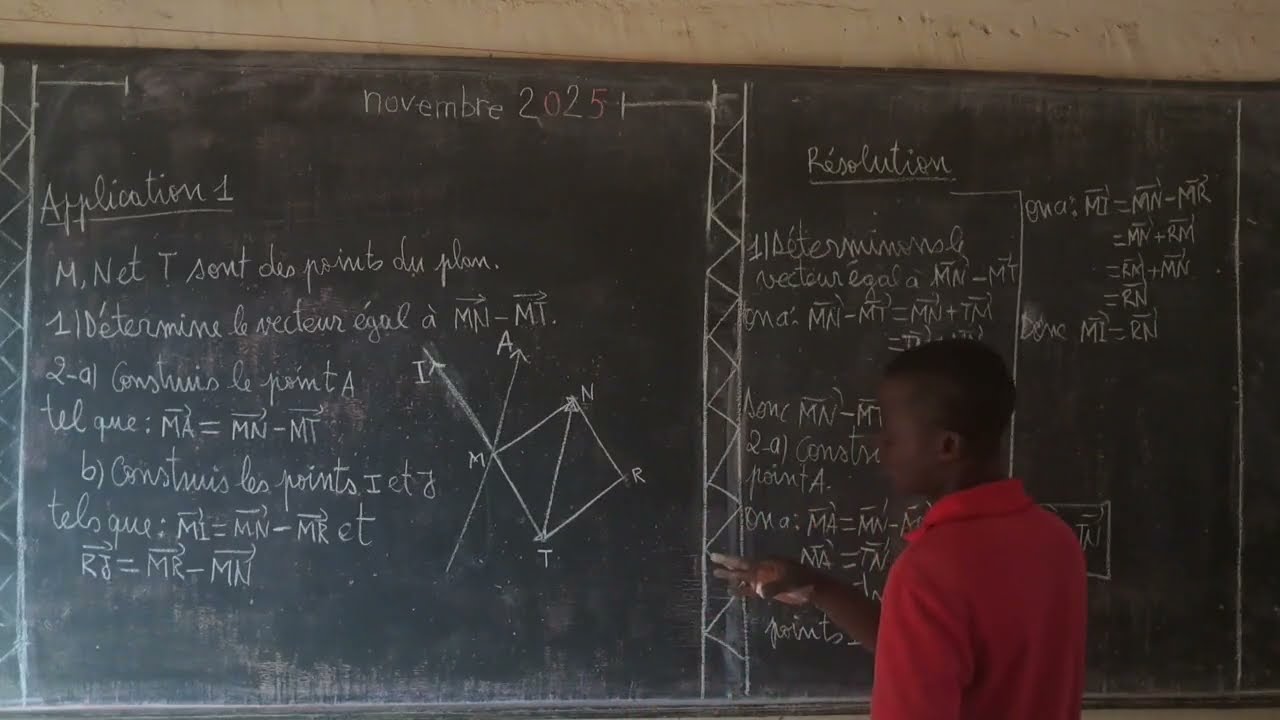 novembre 2025
Application 1
M, N et T sont des points du plan.
1) Détermine le vecteur égal à MN⃗ - MT⃗.
2-a) Construis le point A
tel que : MA⃗ = MN⃗ - MT⃗
b) Construis les points I et J
tels que : MI⃗ = MN⃗ - MR⃗ et
RJ⃗ = MR⃗ - MN⃗
I
A
N
M
R
T
Résolution
1) Déterminons le
vecteur égal à MN⃗ - MT⃗
on a : MN⃗ - MT⃗ = MN⃗ + TM⃗
=
Donc MN⃗ - MT⃗
2-a)
point A.
On a : MA⃗ = MN⃗ -
MA⃗ = TN⃗
TN⃗
points
on a : MI⃗ = MN⃗ - MR⃗
= MN⃗ + RM⃗
= RM⃗ + MN⃗
= RN⃗
Donc MI⃗ = RN⃗